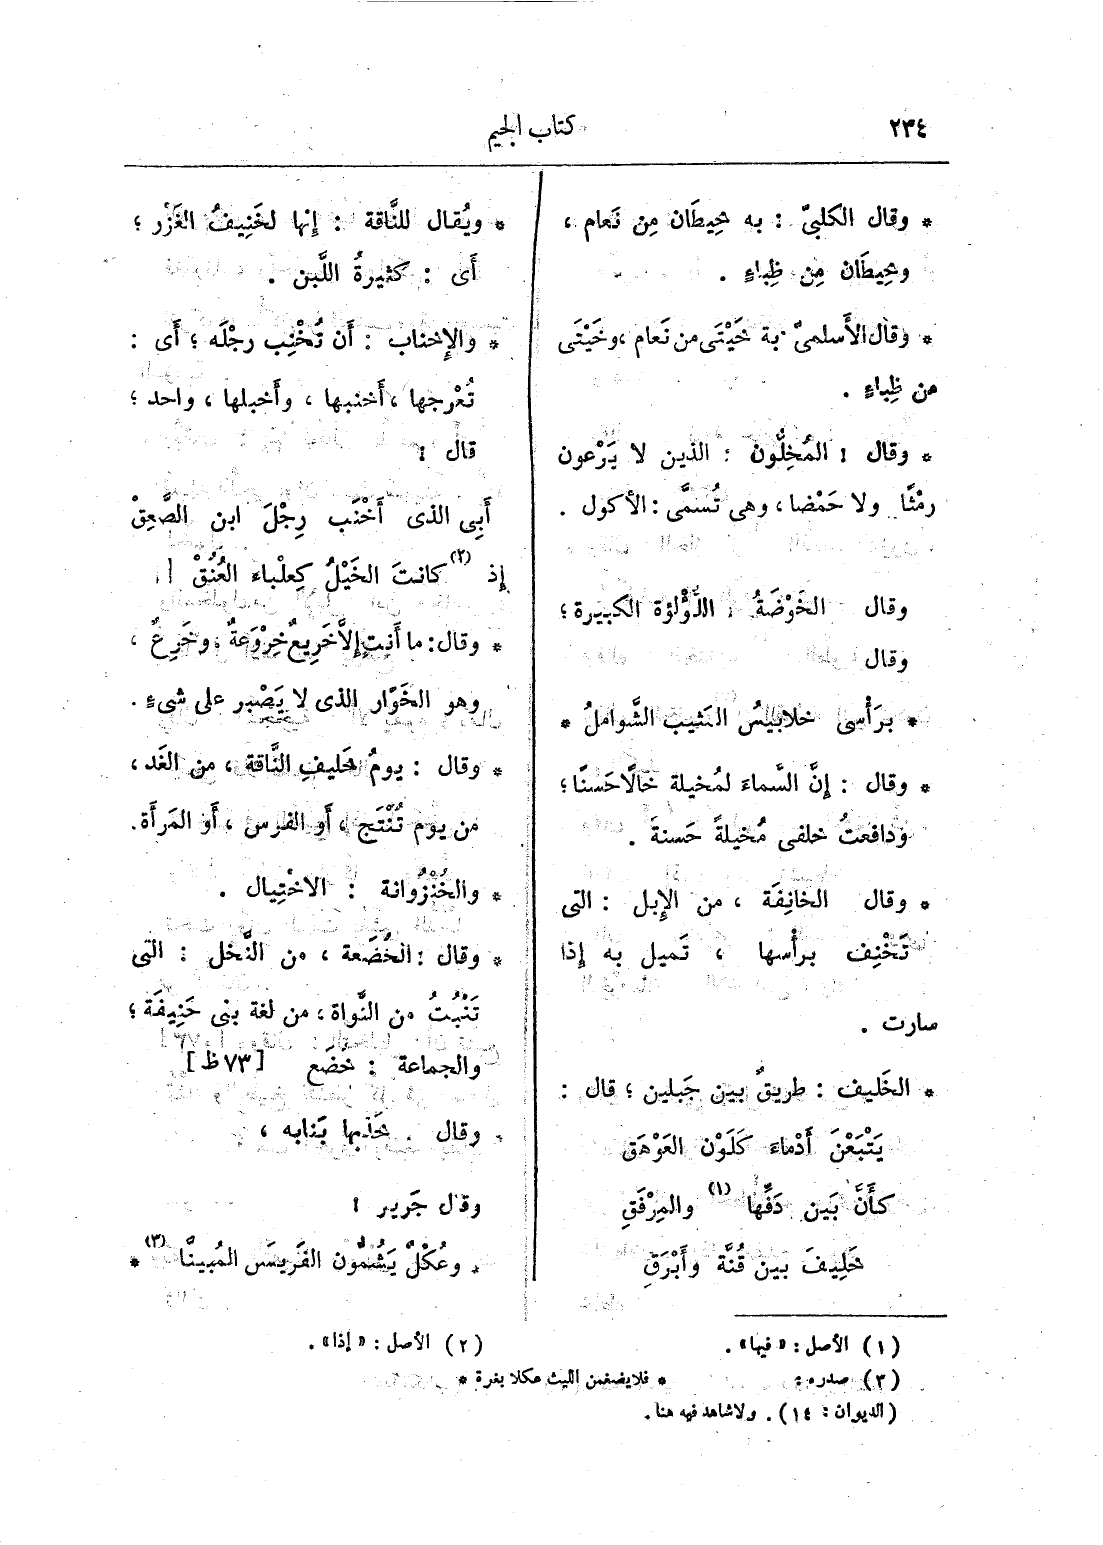 ٢٣٤
كتاب الجيم
* وقال الكلبىّ : به خِيطَان مِن نَعام ،
وخِيطَان مِن ظِباءٍ .
* وقال الأَسلمىّ : بة خَيْتَى من نَعام ، وخَيْتَى
من ظِباءٍ .
* وقال : المُخِلُّون : الذين لا يَرْعون
رمْثًا ولا حَمْضا ، وهى تُسمَّى : الأكول .
وقال الخَوْضَةُ : اللُّؤْلؤة الكبيرة ؛
وقال
* برَأْسى خلابيسُ المَشيب الشَّواملُ *
* وقال : إنَّ السَّماءَ لمُخيلة خالًا حَسنًا ؛
ودافعتُ خلفى مُخيلةً حَسنةً .
* وقال الخانِفَة ، من الإبل : التى
تَخْنِف برأْسها ، تَميل به إذا
سارت .
* الخَليف : طريقٌ بين جَبلين ؛ قال :
يَتْبَعْنَ أَدْماءَ كَلَوْن العَوْهَق
كأَنَّ بَين دَفِّها (١) والمِرْفَقِ
خَلِيفَ بين قُنَّة وأَبْرَقِ
* ويُقال للنَّاقة : إنها لخَنِيفُ الغَزْر ؛
أَى : كثيرةُ اللَّبن .
* والإخناب : أَن تُخْنِب رجْلَه ؛ أَى :
تُعْرجها ، أَخنبها ، وأَخبلها ، واحد ؛
قال :
أَبِى الذى أَخْنَب رِجْلَ ابن الصَّعِقْ
إِذ (٢) كانتَ الخَيْلُ كعِلْباء العُنُقْ
* وقال : ما أَنت إلاَّ خَرِيعٌ خِرْوَعةٌ ، وخَرِعٌ ،
وهو الخَوّار الذى لا يَصْبر على شىءٍ .
* وقال : يومُ خَليفِ النَّاقة ، من الغَد ،
من يوم تُنْتَج ، أَو الفرس ، أَو المَرأَة .
* والخُنْزُوانة : الاخْتِيال .
* وقال : الخُضَعة ، من النَّخل : التى
تَنْبُتُ من النَّواة ، من لغة بنى حَنِيفَة ؛
والجماعة : خُضَع [٧٣ ظ]
* وقال . خَذبها بَنابه ،
وقال جَرير :
* وعُكْلٌ يَشُمُّون الفَريسَ المُبينَّا (٣) *
(١) الأصل : « فيها » .
(٢) الأصل : « إذا » .
(٣) صدره : * فلا يضغمن الليث عكلا بغرة *
(الديوان : ١٤) . ولا شاهد فيه هنا .